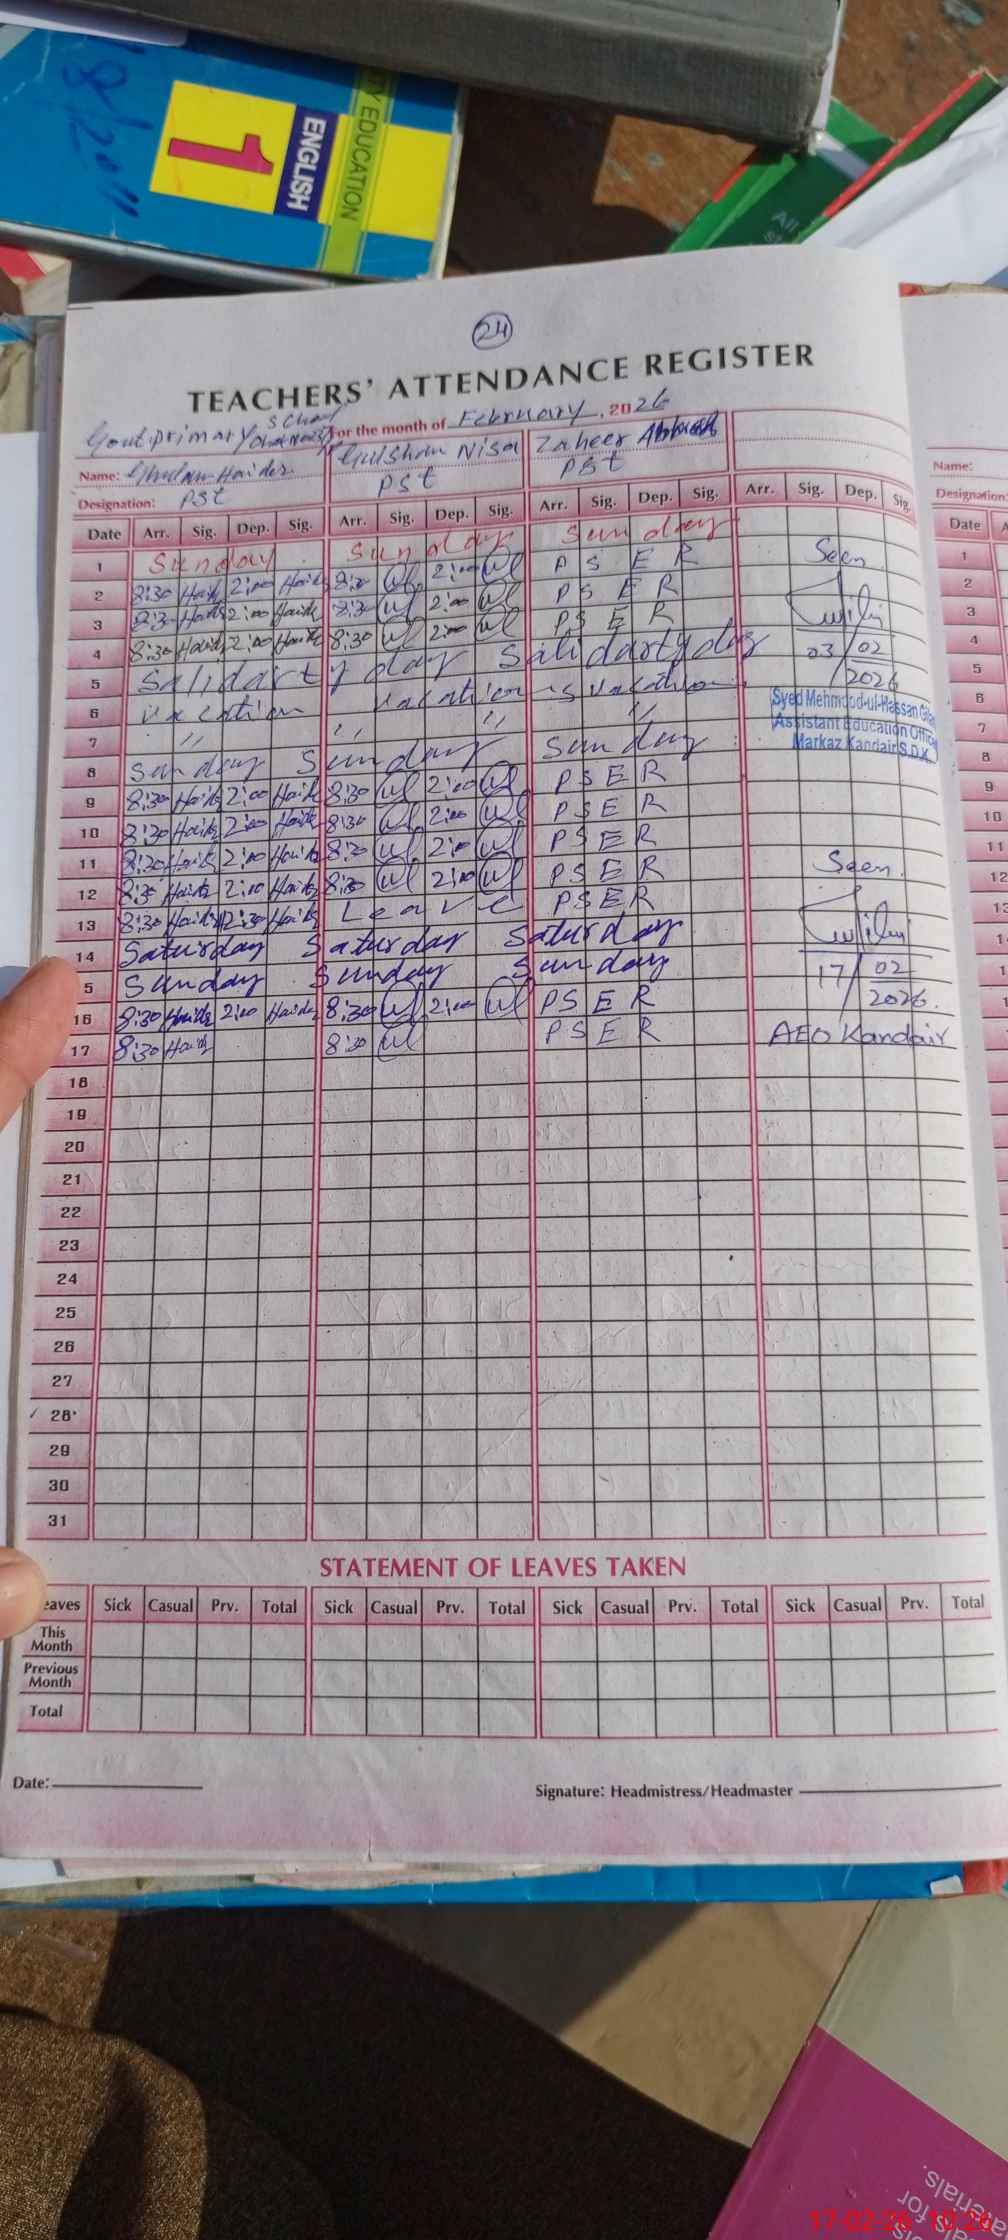 8/2011
TY EDUCATION
ENGLISH
1
All
24
TEACHERS' ATTENDANCE REGISTER
Govt: primary School
For the month of February, 2026
Name: Ghulam Haider Gulshan Nisa Zaheer
Designation: PSt PSt PSt
Date Arr. Sig. Dep. Sig. Arr. Sig. Dep. Sig. Arr. Sig. Dep. Sig. Arr. Sig. Dep. Sig.
1 Sunday Sunday Sunday
2 8:30 Haider 2:00 Haider 8:30 2:00 P S E R Seen
3 8:30 Haider 2:00 Haider 8:30 2:00 P S E R
4 8:30 Haider 2:00 Haider 8:30 2:00 P S E R 03/02/2026
5 Salidarty day Salidarty day
6 vacation vacation s vacation
7 " " " "
8 Sunday Sunday Sunday
Syed Mehmood-ul-Hassan
Assistant Education Officer
Markaz Kandair S.D.K
9 8:30 Haider 2:00 Haider 8:30 2:00 P S E R
10 8:30 Haider 2:00 Haider 8:30 2:00 P S E R
11 8:30 Haider 2:00 Haider 8:30 2:00 P S E R
12 8:30 Haider 2:00 Haider 8:30 2:00 P S E R Seen
13 8:30 Haider 12:30 Haider Leave P S E R
14 Saturday Saturday Saturday
5 Sunday Sunday Sunday 17/02/2026.
16 8:30 Haider 2:00 Haider 8:30 2:00 P S E R
17 8:30 Haider 8:30 P S E R AEO Kandair
18
19
20
21
22
23
24
25
26
27
28
29
30
31
STATEMENT OF LEAVES TAKEN
eaves Sick Casual Prv. Total Sick Casual Prv. Total Sick Casual Prv. Total Sick Casual Prv. Total
This Month
Previous Month
Total
Date:
Signature: Headmistress/Headmaster
Name:
Designation:
Date A
1
2
3
4
5
6
7
8
9
10
11
12
13
1
als for
erials.
17-02-26 10:26